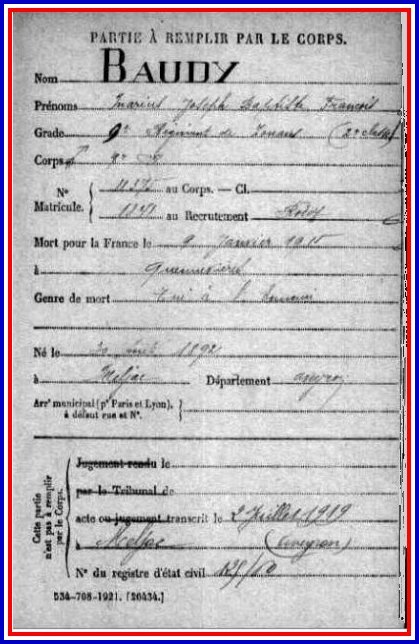 PARTIE À REMPLIR PAR LE CORPS.
Nom BAUDY
Prénoms Marius Joseph Baptiste François
Grade 9e Régiment de Zouaves (2e classe)
Corps
Nº Matricule. { au Corps. — Cl.
au Recrutement Rodez
Mort pour la France le 9 Janvier 1915
à
Genre de mort Tué à l'ennemi
Né le 1892
à Meljac Département Aveyron
Arrt municipal (pr Paris et Lyon), à défaut rue et Nº. }
Cette partie n'est pas à remplir par le Corps. { Jugement rendu le
par le Tribunal de
acte ou jugement transcrit le 2 Juillet 1919
à Meljac (Aveyron)
Nº du registre d'état civil
534-708-1921. [26434.]